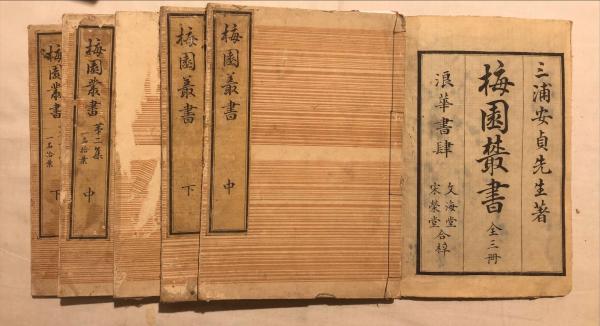 三浦安貞先生著
梅園叢書 全三冊
浪華書肆
文海堂
宋榮堂
合梓
梅園叢書
中
梅園叢書
下
梅園叢書 第二集
一名拾葉
中
梅園叢書
一名拾葉
下